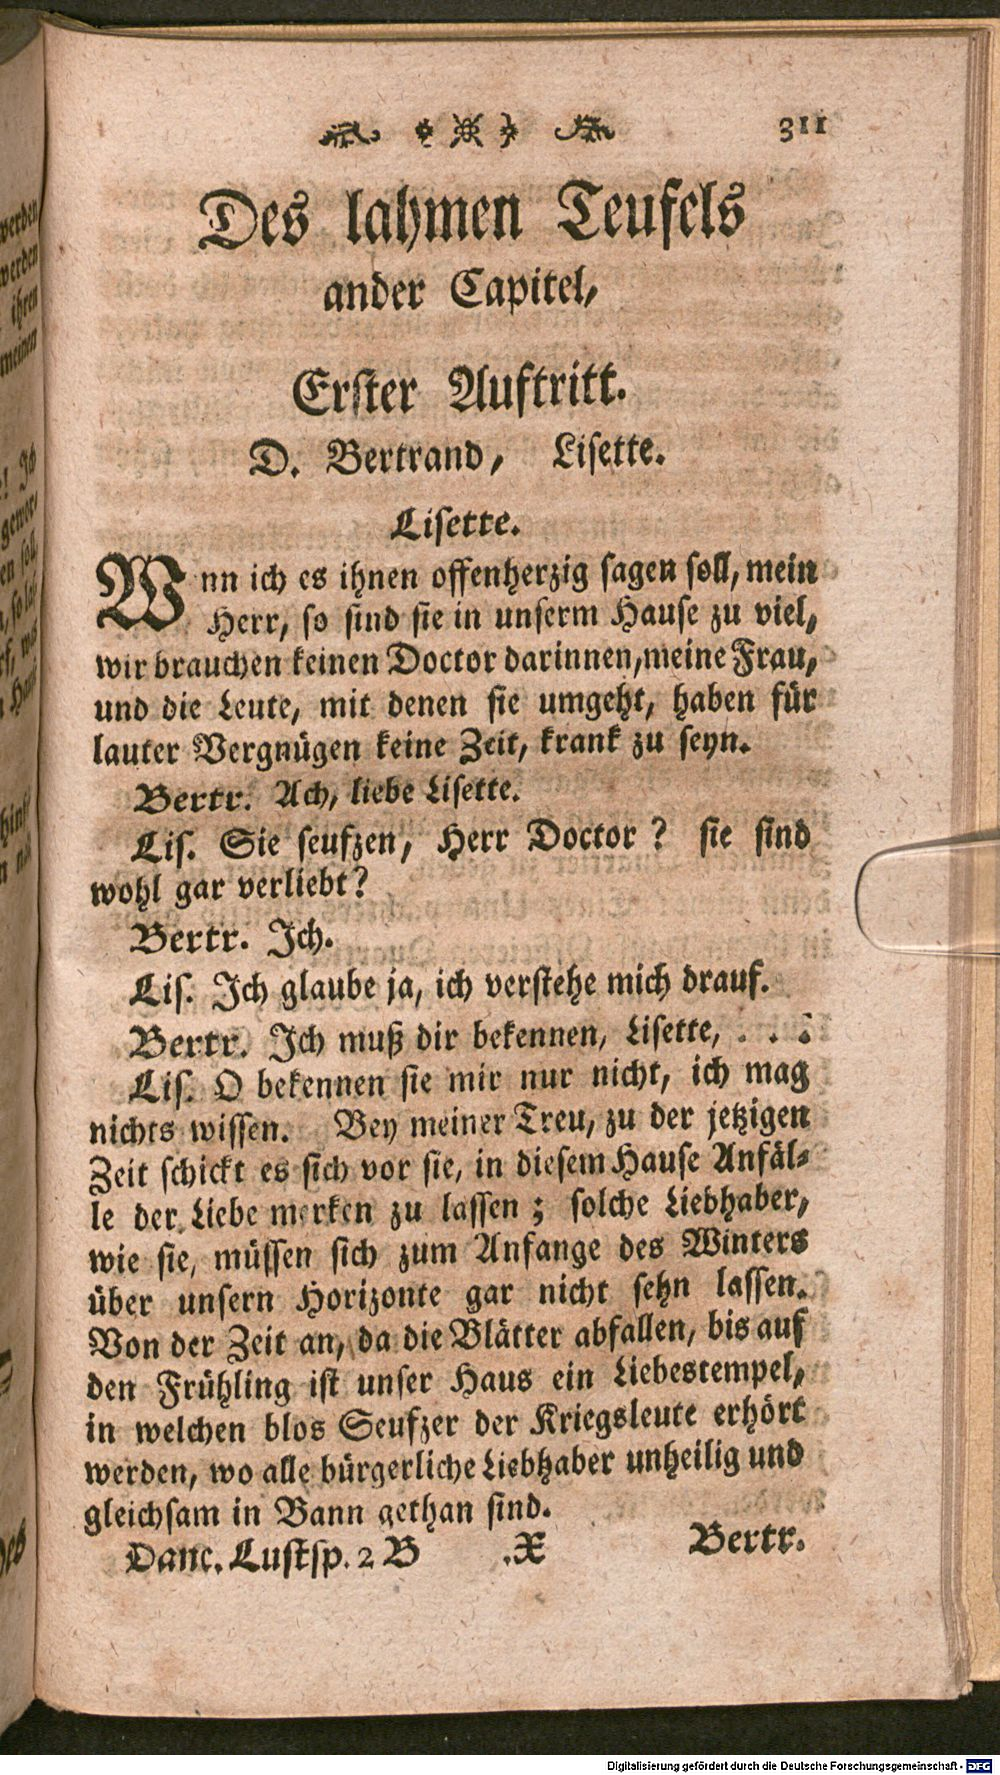 311
Des lahmen Teufels
ander Capitel,
Erster Auftritt.
D. Bertrand, Lisette.
Lisette.
Wnn ich es ihnen offenherzig sagen soll, mein
Herr, so sind sie in unserm Hause zu viel,
wir brauchen keinen Doctor darinnen, meine Frau,
und die Leute, mit denen sie umgeht, haben für
lauter Vergnügen keine Zeit, krank zu seyn.
Bertr. Ach, liebe Lisette.
Lis. Sie seufzen, Herr Doctor? sie sind
wohl gar verliebt?
Bertr. Ich.
Lis. Ich glaube ja, ich verstehe mich drauf.
Bertr. Ich muß dir bekennen, Lisette, . . .
Lis. O bekennen sie mir nur nicht, ich mag
nichts wissen. Bey meiner Treu, zu der jetzigen
Zeit schickt es sich vor sie, in diesem Hause Anfäl-
le der Liebe merken zu lassen; solche Liebhaber,
wie sie, müssen sich zum Anfange des Winters
über unsern Horizonte gar nicht sehn lassen.
Von der Zeit an, da die Blätter abfallen, bis auf
den Frühling ist unser Haus ein Liebestempel,
in welchen blos Seufzer der Kriegsleute erhört
werden, wo alle bürgerliche Liebhaber unheilig und
gleichsam in Bann gethan sind.
Danc. Lustsp. 2 B .X Bertr.
Digitalisierung gefördert durch die Deutsche Forschungsgemeinschaft - DFG